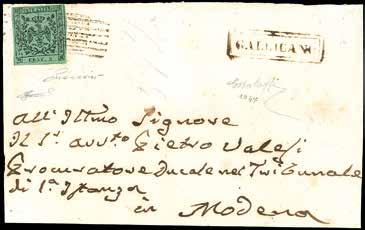 CENT. 5
GALLICANO
All'Illmo Signore
Il Sr. Avvto Pietro Valesi
Procuratore Ducale nel Tribunale
di 1a Istanza
in Modena